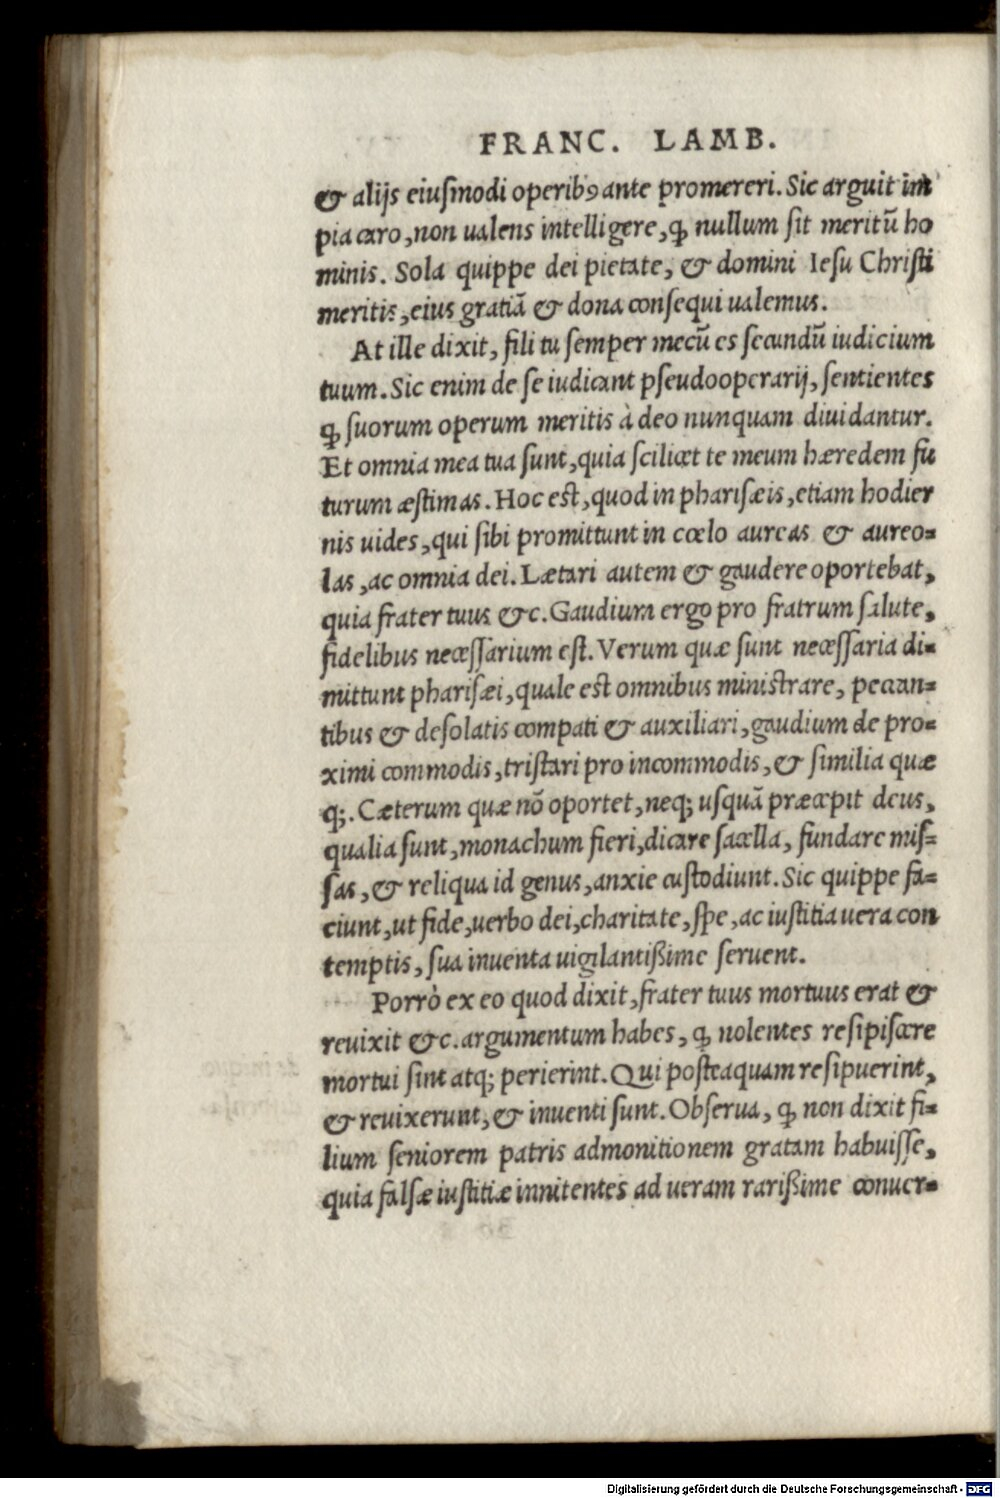 FRANC. LAMB.
& alijs eiuſmodi operibꝰ ante promereri. Sic arguit im
pia caro, non ualens intelligere, ꝙ nullum ſit meritũ ho
minis. Sola quippe dei pietate, & domini Ieſu Chriſti
meritis, eius gratiã & dona conſequi ualemus.
At ille dixit, fili tu ſemper mecũ es ſecundũ iudicium
tuum. Sic enim de ſe iudicant pſeudooperarij, ſentientes
ꝙ ſuorum operum meritis à deo nunquam diuidantur.
Et omnia mea tua ſunt, quia ſcilicet te meum hæredem fu
turum æſtimas. Hoc eſt, quod in phariſæis, etiam hodier
nis uides, qui ſibi promittunt in cœlo aureas & aureo-
las, ac omnia dei. Lætari autem & gaudere oportebat,
quia frater tuus &c. Gaudium ergo pro fratrum ſalute,
fidelibus neceſſarium eſt. Verum quæ ſunt neceſſaria di-
mittunt phariſæi, quale est omnibus miniſtrare, peccan-
tibus & deſolatis compati & auxiliari, gaudium de pro-
ximi commodis, triſtari pro incommodis, & ſimilia quæ
q;. Cæterum quæ nõ oportet, neq; uſquã præcepit deus,
qualia ſunt, monachum fieri, dicare ſacella, fundare miſ-
ſas, & reliqua id genus, anxie cuſtodiunt. Sic quippe fa-
ciunt, ut fide, uerbo dei, charitate, ſpe, ac iuſtitia uera con
temptis, ſua inuenta uigilantißime ſeruent.
Porrò ex eo quod dixit, frater tuus mortuus erat &
reuixit &c. argumentum habes, ꝙ nolentes reſipiſcere
mortui ſint atq; perierint. Qui poſteaquam reſipuerint,
& reuixerunt, & inuenti ſunt. Obſerua, ꝙ non dixit fi-
lium ſeniorem patris admonitionem gratam habuiſſe,
quia falſæ iuſtitiæ innitentes ad ueram rarißime conuer-
Digitalisierung gefördert durch die Deutsche Forschungsgemeinschaft - DFG